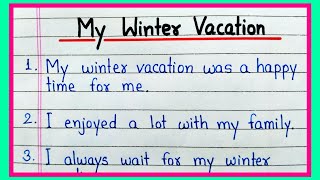 My Winter Vacation
1. My winter vacation was a happy
time for me.
2. I enjoyed a lot with my family.
3. I always wait for my winter